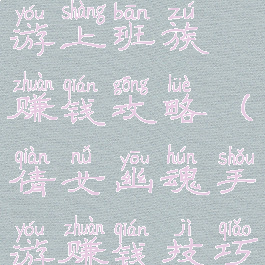 yóu shàng bān zú
游上班族
zhuàn qián gōng lüè
赚钱攻略（
qiàn nǚ yōu hún shǒu
倩女幽魂手
yóu zhuàn qián jì qiǎo
游赚钱技巧